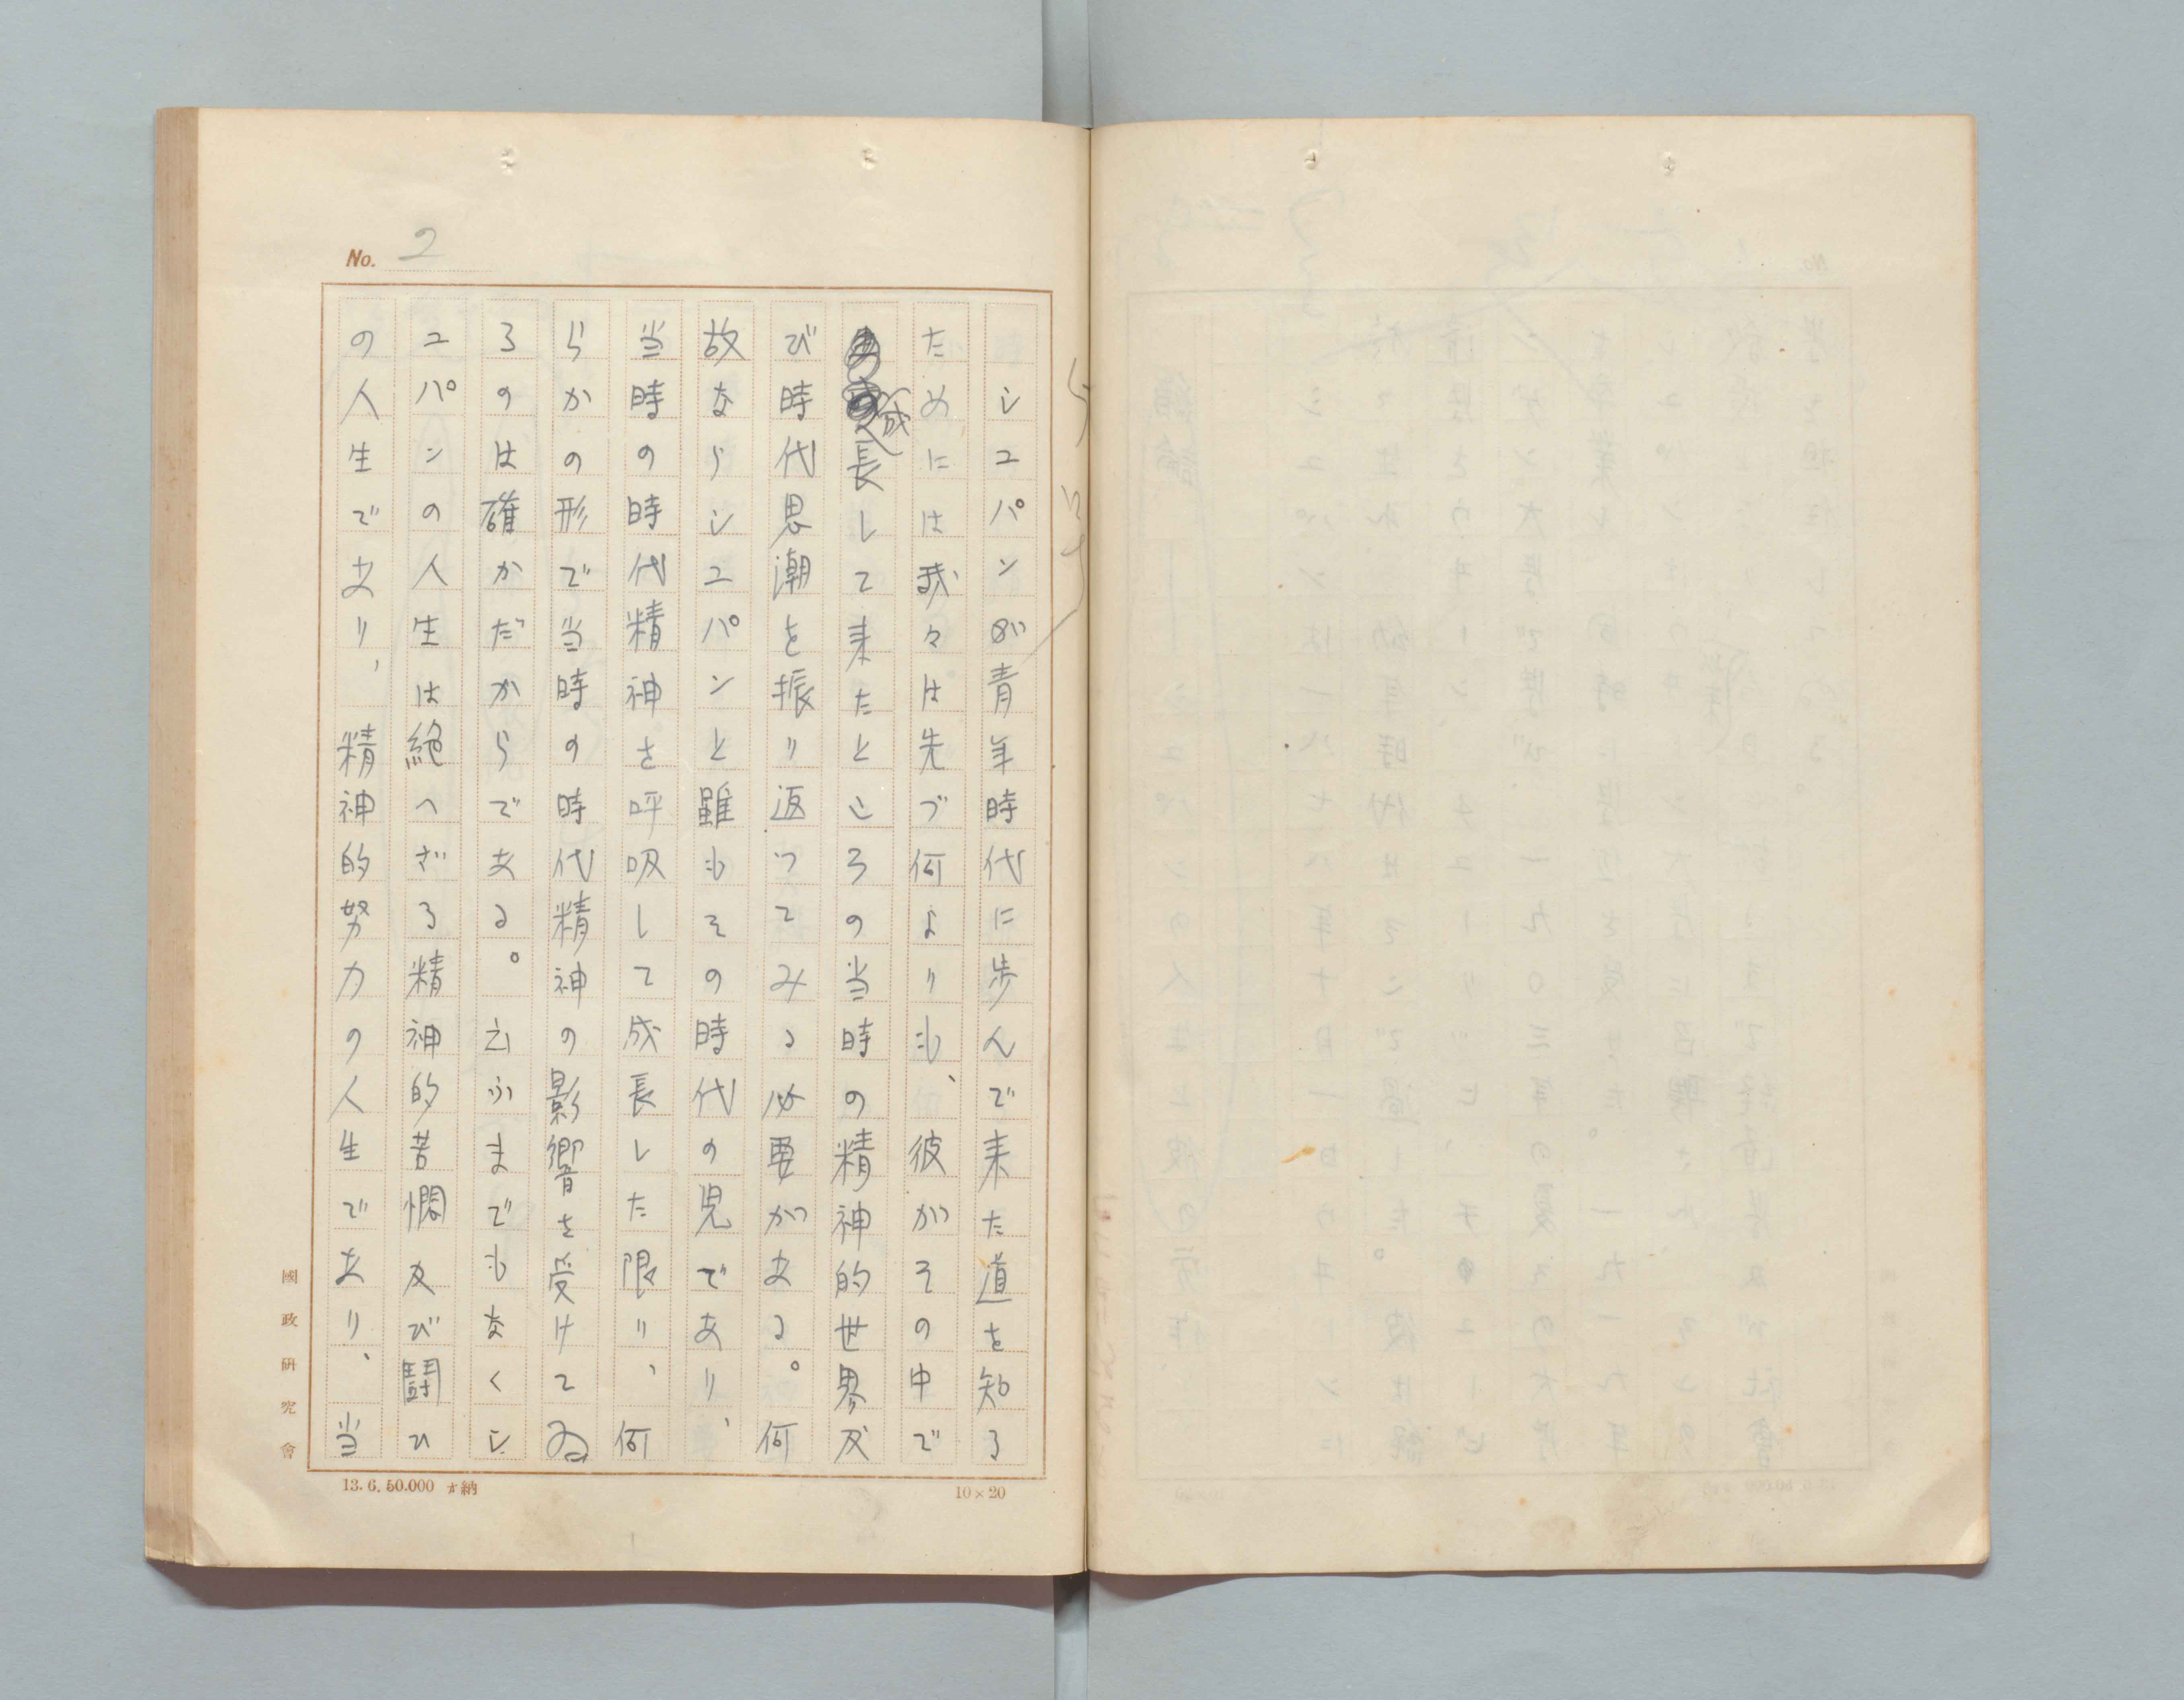 No. 2
シユパンが青年時代に歩んで来た道を知る
ためには我々は先づ何よりも、彼がその中で
成長して来たところの当時の精神的世界及
び時代思潮を振り返つてみる必要がある。何
故ならシユパンと雖もその時代の児であり、
当時の時代精神を呼吸して成長した限り、何
らかの形で当時の時代精神の影響を受けてゐ
るのは確かだからである。云ふまでもなくシ
ユパンの人生は絶へざる精神的苦悶及び闘ひ
の人生であり、精神的努力の人生であり、当
國政研究會
13.6.50.000 納
10×20